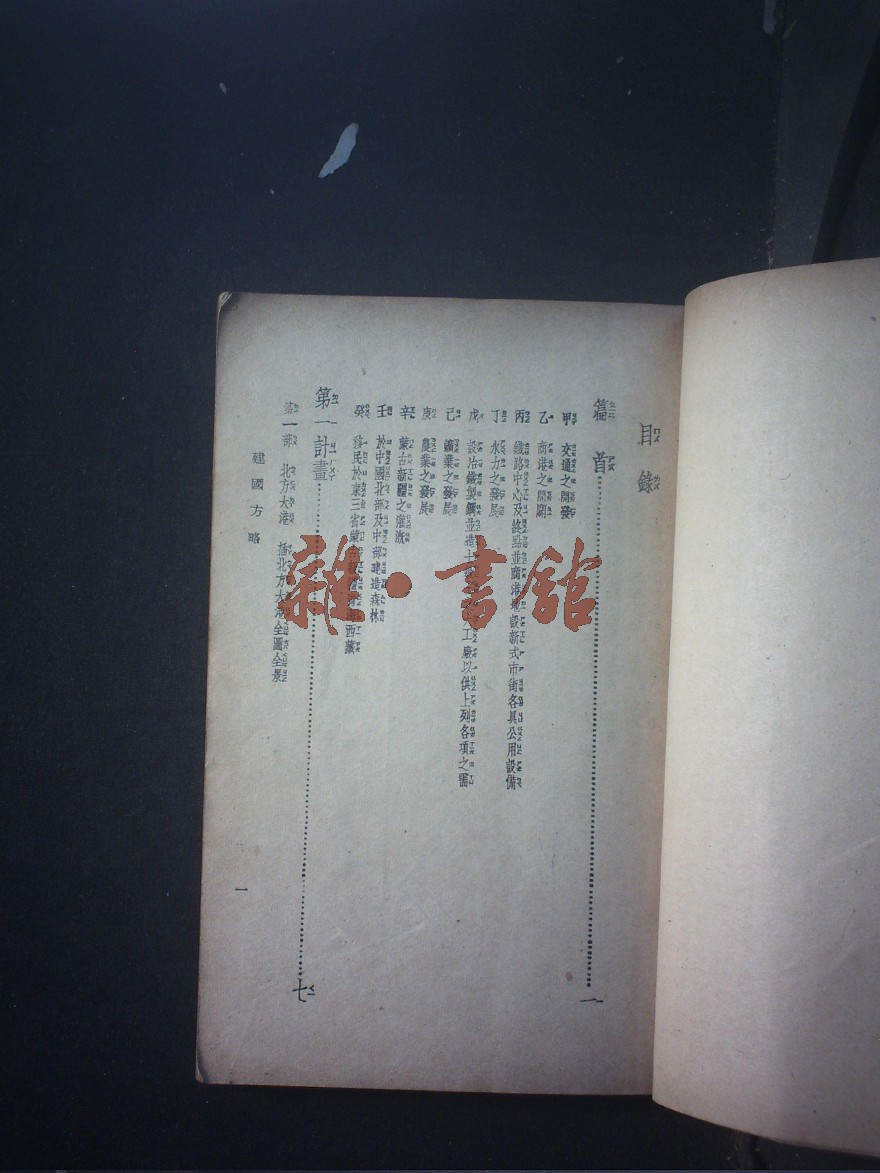 目錄
篇首……一
甲 交通之開發
乙 商港之開闢
丙 鐵路中心及終點並商港地設新式市街各具公用設備
丁 水力之發展
戊 設冶鐵製鋼並造士 工廠以供上列各項之需
己 鑛業之發展
庚 農業之發展
辛 蒙古新疆之灌漑
壬 於中國北部及中部建造森林
癸 移民於東三省蒙古 西藏
第一計畫……七
第一部 北方大港 插北方大港全圖全景
建國方略
一
雜·書館